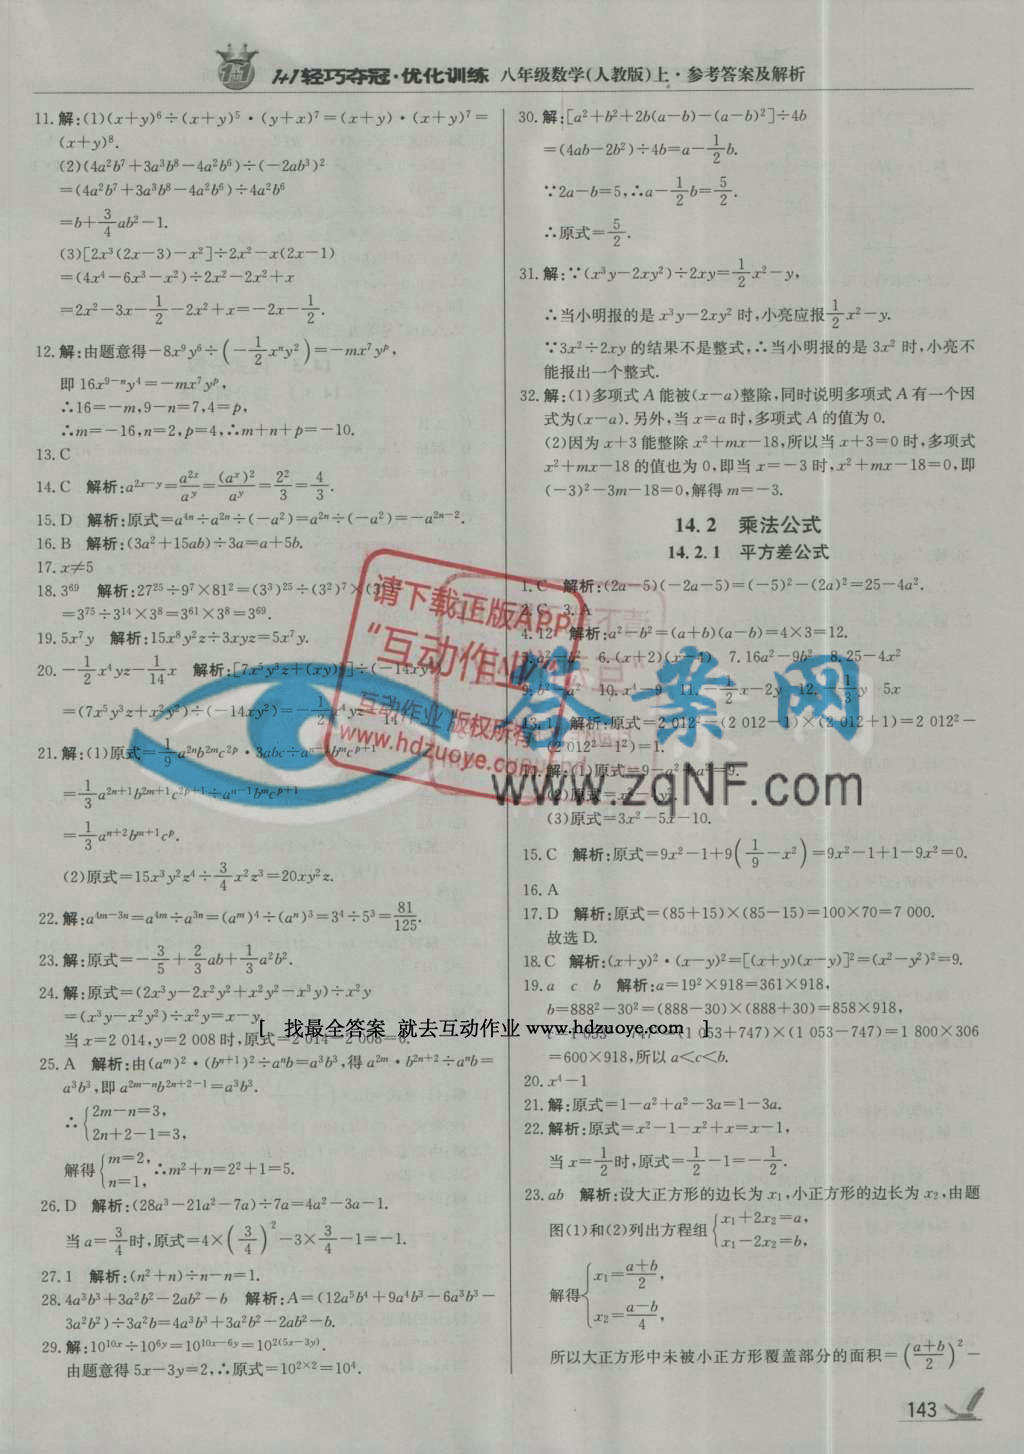 1+1轻巧夺冠·优化训练 八年级数学(人教版)上·参考答案及解析
11.解:(1)(x+y)⁶÷(x+y)⁵·(y+x)⁷=(x+y)·(x+y)⁷=
(x+y)⁸.
(2)(4a²b⁷+3a³b⁸-4a²b⁶)÷(-2ab³)²
=(4a²b⁷+3a³b⁸-4a²b⁶)÷4a²b⁶
=b+3/4ab²-1.
(3)[2x³(2x-3)-x²]÷2x²-x(2x-1)
=(4x⁴-6x³-x²)÷2x²-2x²+x
=2x²-3x-1/2-2x²+x=-2x-1/2.
12.解:由题意得-8x⁹y⁶÷(-1/2xⁿy²)=-mx⁷yᵖ,
即16x⁹⁻ⁿy⁴=-mx⁷yᵖ,
∴16=-m,9-n=7,4=p,
∴m=-16,n=2,p=4,∴m+n+p=-10.
13.C
14.C 解析:a^(2x-y)=a^(2x)/a^y=(a^x)²/a^y=2²/3=4/3.
15.D 解析:原式=a⁴ⁿ÷a²ⁿ÷(-a²)=a²ⁿ÷(-a²)=-a²ⁿ⁻².
16.B 解析:(3a²+15ab)÷3a=a+5b.
17.x≠5
18.3⁶⁹ 解析:27²⁵÷9⁷×81²=(3³)²⁵÷(3²)⁷×(3
=3⁷⁵÷3¹⁴×3⁸=3⁶¹×3⁸=3⁶⁹.
19.5x⁷y 解析:15x⁸y²z÷3xyz=5x⁷y.
20.-1/2x⁴yz-1/14x 解析:[7x⁵y³z+(xy)²]÷(-14xy²)
=(7x⁵y³z+x²y²)÷(-14xy²)=-1/2x⁴yz-
21.解:(1)原式=1/9a²ⁿb²ᵐc²ᵖ·3abc÷aⁿ⁻¹bᵐcᵖ⁺¹
=1/3a²ⁿ⁺¹b²ᵐ⁺¹c²ᵖ⁺¹÷aⁿ⁻¹bᵐcᵖ⁺¹
=1/3aⁿ⁺²bᵐ⁺¹cᵖ.
(2)原式=15x³y²z⁴÷3/4x²z³=20xy²z.
22.解:a⁴ᵐ⁻³ⁿ=a⁴ᵐ÷a³ⁿ=(aᵐ)⁴÷(aⁿ)³=3⁴÷5³=81/125.
23.解:原式=-3/5+2/3ab+1/3a²b².
24.解:原式=(2x³y-2x²y²+x²y²-x³y)÷x²y
=(x³y-x²y²)÷x²y=x-y.
当x=2 014,y=2 008时,原式=2 014-2 008=6.
25.A 解析:由(aᵐ)²·(bⁿ⁺¹)²÷aⁿb=a³b³,得a²ᵐ·b²ⁿ⁺²÷aⁿb=
a³b³,即a²ᵐ⁻ⁿb²ⁿ⁺²⁻¹=a³b³.
∴{2m-n=3,
2n+2-1=3,
解得{m=2,
n=1, ∴m²+n=2²+1=5.
26.D 解析:(28a³-21a²-7a)÷7a=4a²-3a-1.
当a=3/4时,原式=4×(3/4)²-3×3/4-1=-1.
27.1 解析:(n²+n)÷n-n=1.
28.4a³b³+3a²b²-2ab²-b 解析:A=(12a⁵b⁴+9a⁴b³-6a³b³-
3a²b²)÷3a²b=4a³b³+3a²b²-2ab²-b.
29.解:10¹⁰ˣ÷10⁶ʸ=10¹⁰ˣ⁻⁶ʸ=10²⁽⁵ˣ⁻³ʸ⁾.
由题意得5x-3y=2,∴原式=10²ˣ²=10⁴.
30.解:[a²+b²+2b(a-b)-(a-b)²]÷4b
=(4ab-2b²)÷4b=a-1/2b.
∵2a-b=5,∴a-1/2b=5/2.
∴原式=5/2.
31.解:∵(x³y-2xy²)÷2xy=1/2x²-y,
∴当小明报的是x³y-2xy²时,小亮应报1/2x²-y.
∵3x²÷2xy的结果不是整式,∴当小明报的是3x²时,小亮不
能报出一个整式.
32.解:(1)多项式A能被(x-a)整除,同时说明多项式A有一个因
式为(x-a).另外,当x=a时,多项式A的值为0.
(2)因为x+3能整除x²+mx-18,所以当x+3=0时,多项式
x²+mx-18的值也为0,即当x=-3时,x²+mx-18=0,即
(-3)²-3m-18=0,解得m=-3.
14.2 乘法公式
14.2.1 平方差公式
1.C 解析:(2a-5)(-2a-5)=(-5)²-(2a)²=25-4a².
2.C 3.A
4.12 解析:a²-b²=(a+b)(a-b)=4×3=12.
5.a²-b² 6.(x+2)(x-1) 7.16a²-9b² 8.25-4x²
9.b²-a² 10.x⁴-9 11.-1/2x-2y 12.-1/3y 5x
13.1 解析:原式=2 012²-(2 012-1)×(2 012+1)=2 012²-
(2 012²-1²)=1.
14.解:(1)原式=9-a²+a²=9.
(2)原式=x²-y².
(3)原式=3x²-5x-10.
15.C 解析:原式=9x²-1+9(1/9-x²)=9x²-1+1-9x²=0.
16.A
17.D 解析:原式=(85+15)×(85-15)=100×70=7 000.
故选D.
18.C 解析:(x+y)²·(x-y)²=[(x+y)(x-y)]²=(x²-y²)²=9.
19.a c b 解析:a=19²×918=361×918,
b=888²-30²=(888-30)×(888+30)=858×918,
c=1 053²-747²=(1 053+747)×(1 053-747)=1 800×306
=600×918,所以a<c<b.
20.x⁴-1
21.解:原式=1-a²+a²-3a=1-3a.
22.解析:原式=x²-1-x²+x=x-1,
当x=1/2时,原式=1/2-1=-1/2.
23.ab 解析:设大正方形的边长为x₁,小正方形的边长为x₂,由题
图(1)和(2)列出方程组{x₁+2x₂=a,
x₁-2x₂=b,
解得{x₁=(a+b)/2,
x₂=(a-b)/4,
所以大正方形中未被小正方形覆盖部分的面积=((a+b)/2)²-
143
请下载正版APP
“互动作业
互动作业 版权所有
www.hdzuoye.com
答案网
www.zqNF.com
[ 找最全答案 就去互动作业 www.hdzuoye.com ]